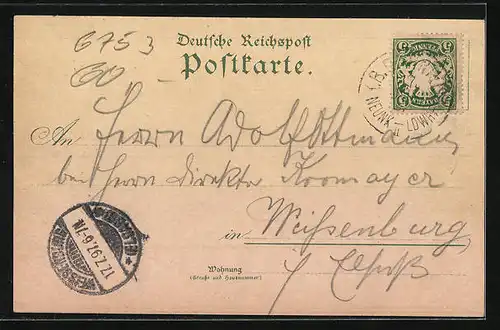 6753
60
Deutsche Reichspost
Postkarte.
BAYERN
An Herrn Adolf Ottmann
bei Herrn Direktor
in Weissenburg
i/ Elsaß
17.7.97. 6-7N.
Wohnung
(Straße und Hausnummer)